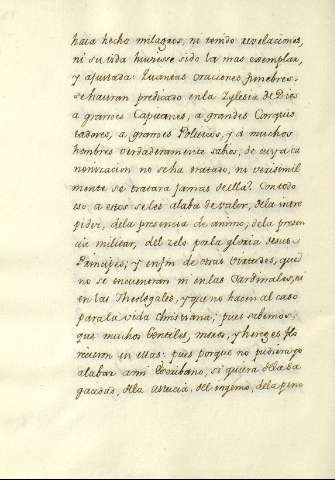 haia hecho milagros, ni tenido revelaciones,
ni su vida huviesse sido la mas exemplar,
y ajustada: Quantas oraciones funebres
se hauran predicado en la Yglesia de Dios
a grandes Capitanes, a grandes Conquis
tadores, a grandes Politicos, y a muchos
hombres verdaderamente sabios, de cuya ca
nonizacion no se ha tratado, ni verisimil
mente se tratara jamas de ella? Con todo
eso, a estos se les alaba de valor, de la intre
pidez, de la presencia de animo, de la presen
cia militar, del zelo por la gloria de sus
Principes; y en fin de otras virtudes, que
no se encuentran ni en las Cardinales, ni
en las Theologales, y que no hacen al caso
para la vida Christiana; pues sabemos,
que muchos Gentiles, moros, y hereges flo
recieron en ellas: pues porque no pudiera yo
alabar a mi Escribano, si quiera de la sa
gacidad, de la astucia, del ingenio, de la pene